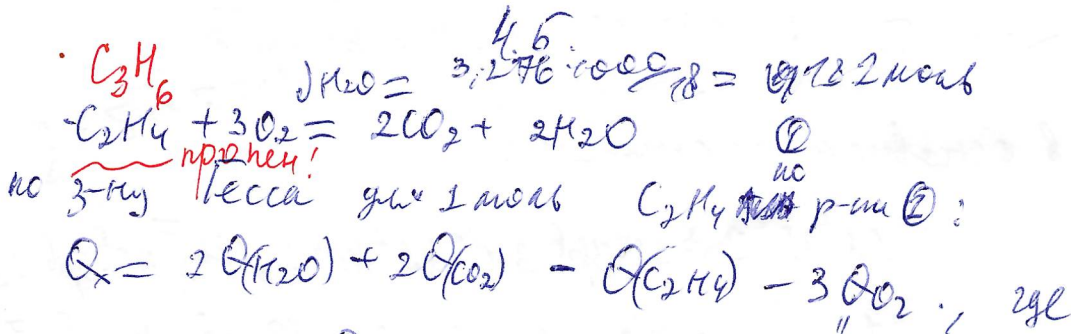 4.б.
C3H6
νH2O = 3,276·1000/18 = 182 моль
C2H4 + 3O2 = 2CO2 + 2H2O ①
пропен!
по з-ну Гесса для 1 моль C2H4 по р-ии ① :
Qx = 2Q(H2O) + 2Q(CO2) - Q(C2H4) - 3QO2 ., где